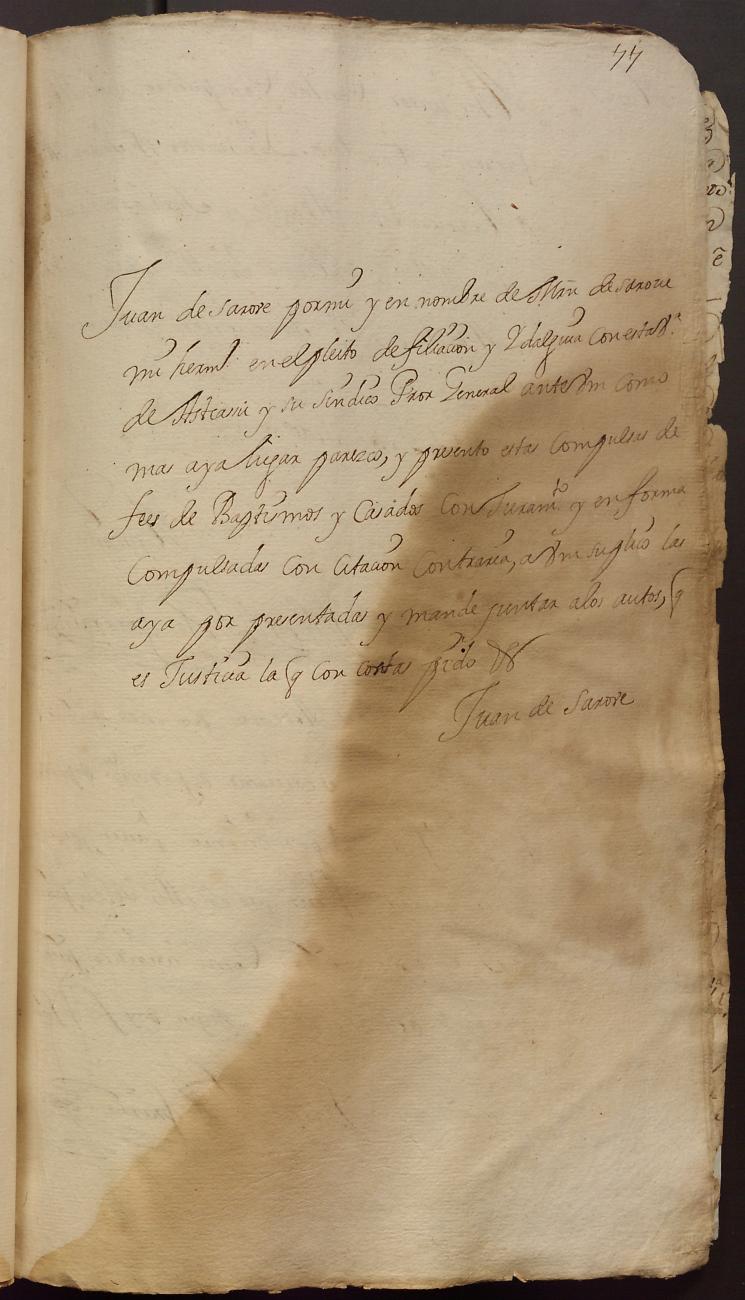 44
Juan de sarove por mi y en nombre de Mrn de sarove
mi herm.º en el pleito de filiacion y Ydalguia con esta V.ª
de Asteasu y su sindico Pror General ante Vm como
mas aya lugar parezco, y presento estas Compulsas de
fees de Baptismos y Casados Con Juram.to y en forma
Compulsadas Con Citacion Contraria, a Vm suplico las
aya por presentadas y mande juntar a los autos, q
es Justicia la q Con costas pido
Juan de Sarove